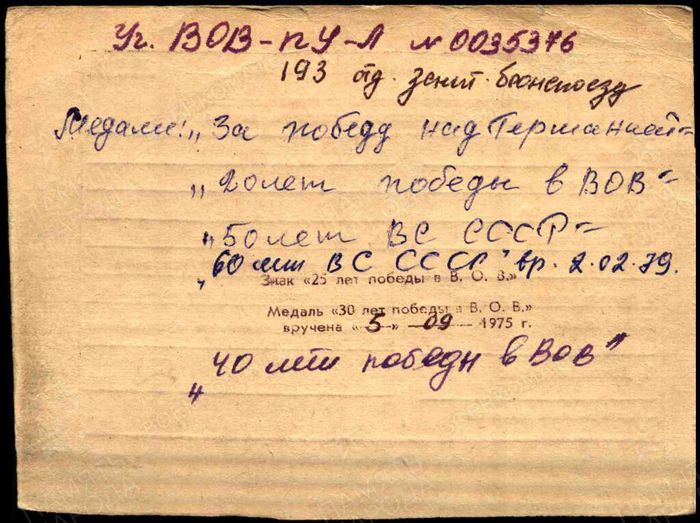 Уч. ВОВ-ПУ-Л № 0035376
193 отд. зенит. бронепоезд
Медали: „За победу над Германией"
„20 лет победы в ВОВ"
„50 лет ВС СССР"
„60 лет ВС СССР" вр. 2.02.79.
Знак «25 лет победы в В. О. В.»
Медаль «30 лет победы в В. О. В.»
вручена «5» 09 1975 г.
„40 лет победы в ВОВ"